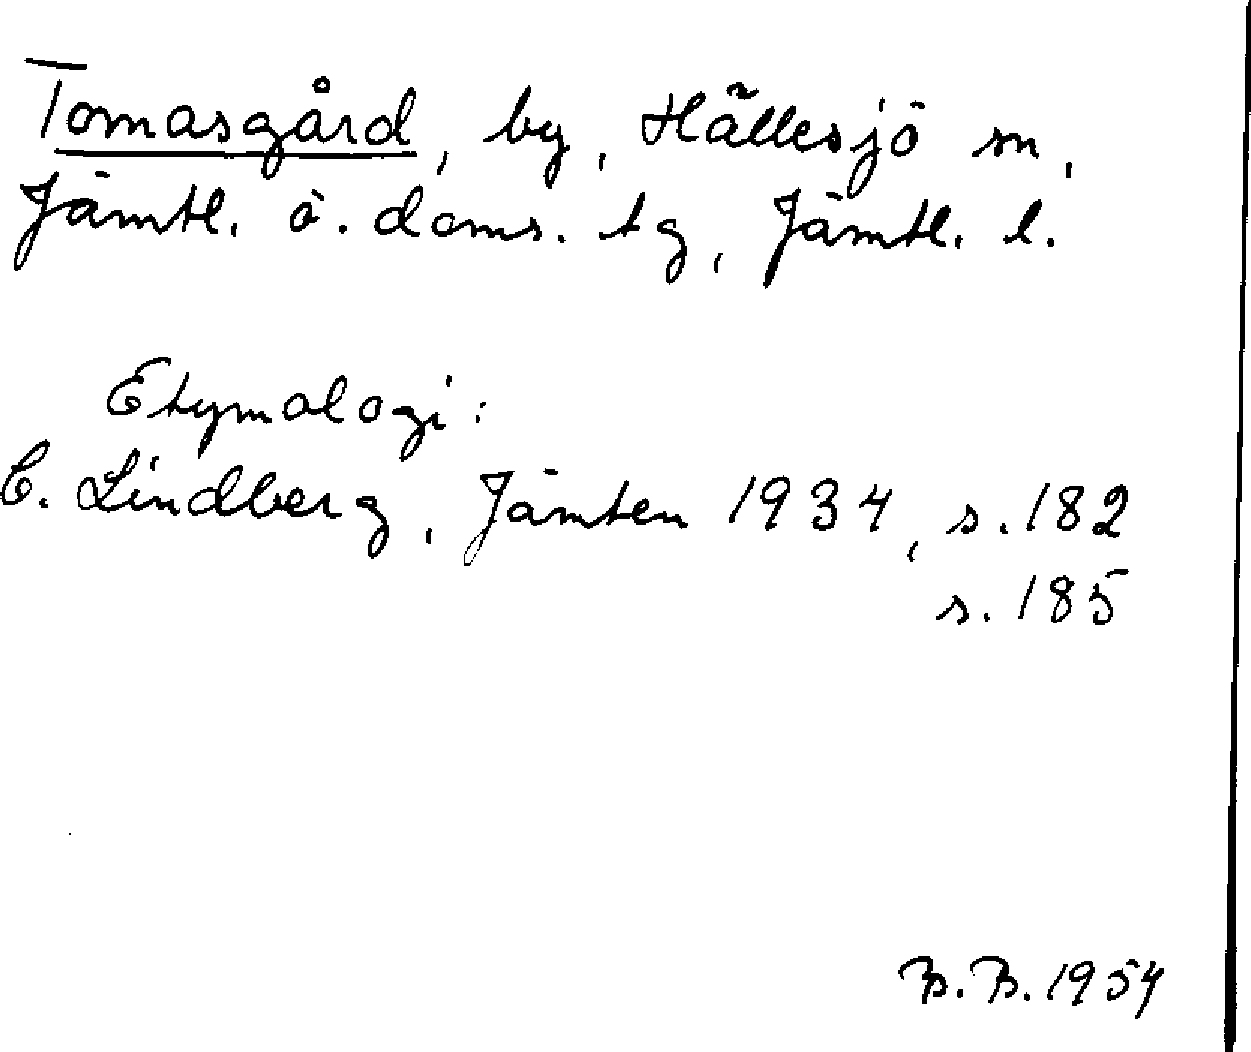 Tomasgård, by, Hällesjö sn,
Jämtl. ö. doms. tg, Jämtl. l.
Etymologi:
C. Lindberg, Jämten 1934, s. 182
s. 185
B. B. 1954